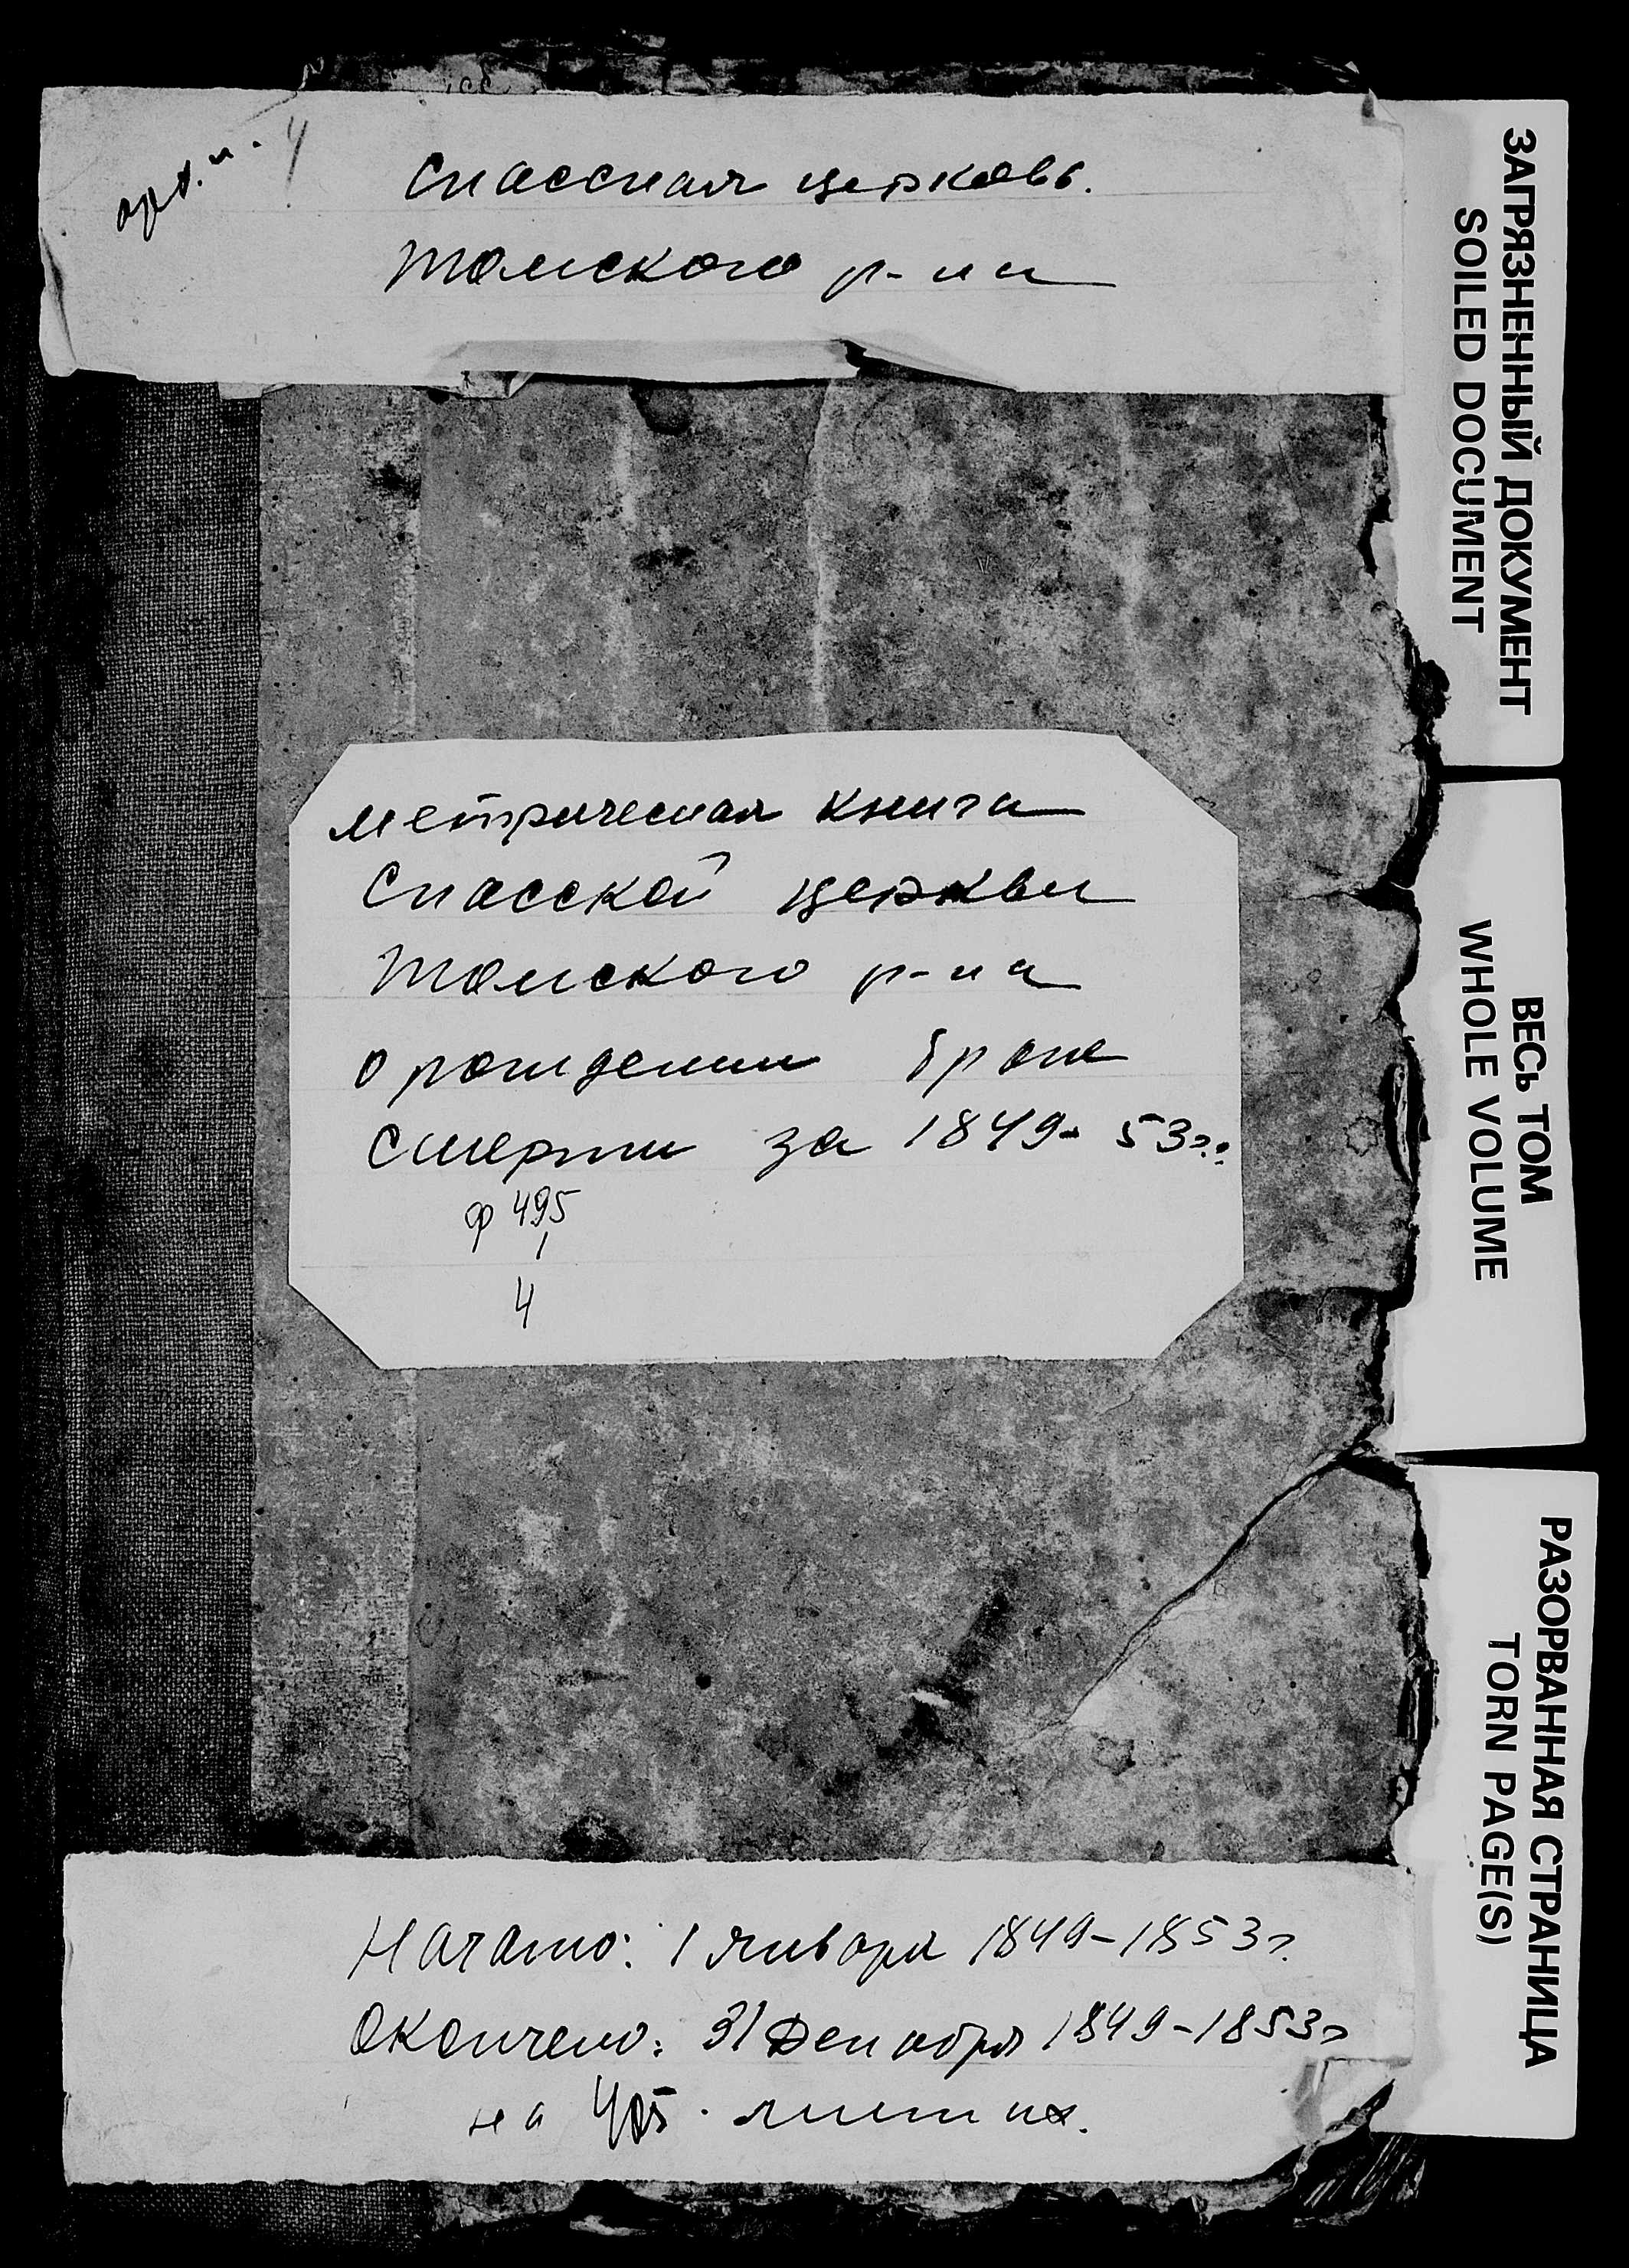 арх. н. 4
Спасская церковь.
Томского р-на
метрическая книга
Спасской церкви
Томского р-на
о рождении браке
смерти за 1849-53г.:
ф 495
1
4
Начато: 1 января 1849-1853г.
Окончено: 31 Декабря 1849-1853г
на листах.
ЗАГРЯЗНЕННЫЙ ДОКУМЕНТ
SOILED DOCUMENT
ВЕСЬ ТОМ
WHOLE VOLUME
РАЗОРВАННАЯ СТРАНИЦА
TORN PAGE(S)